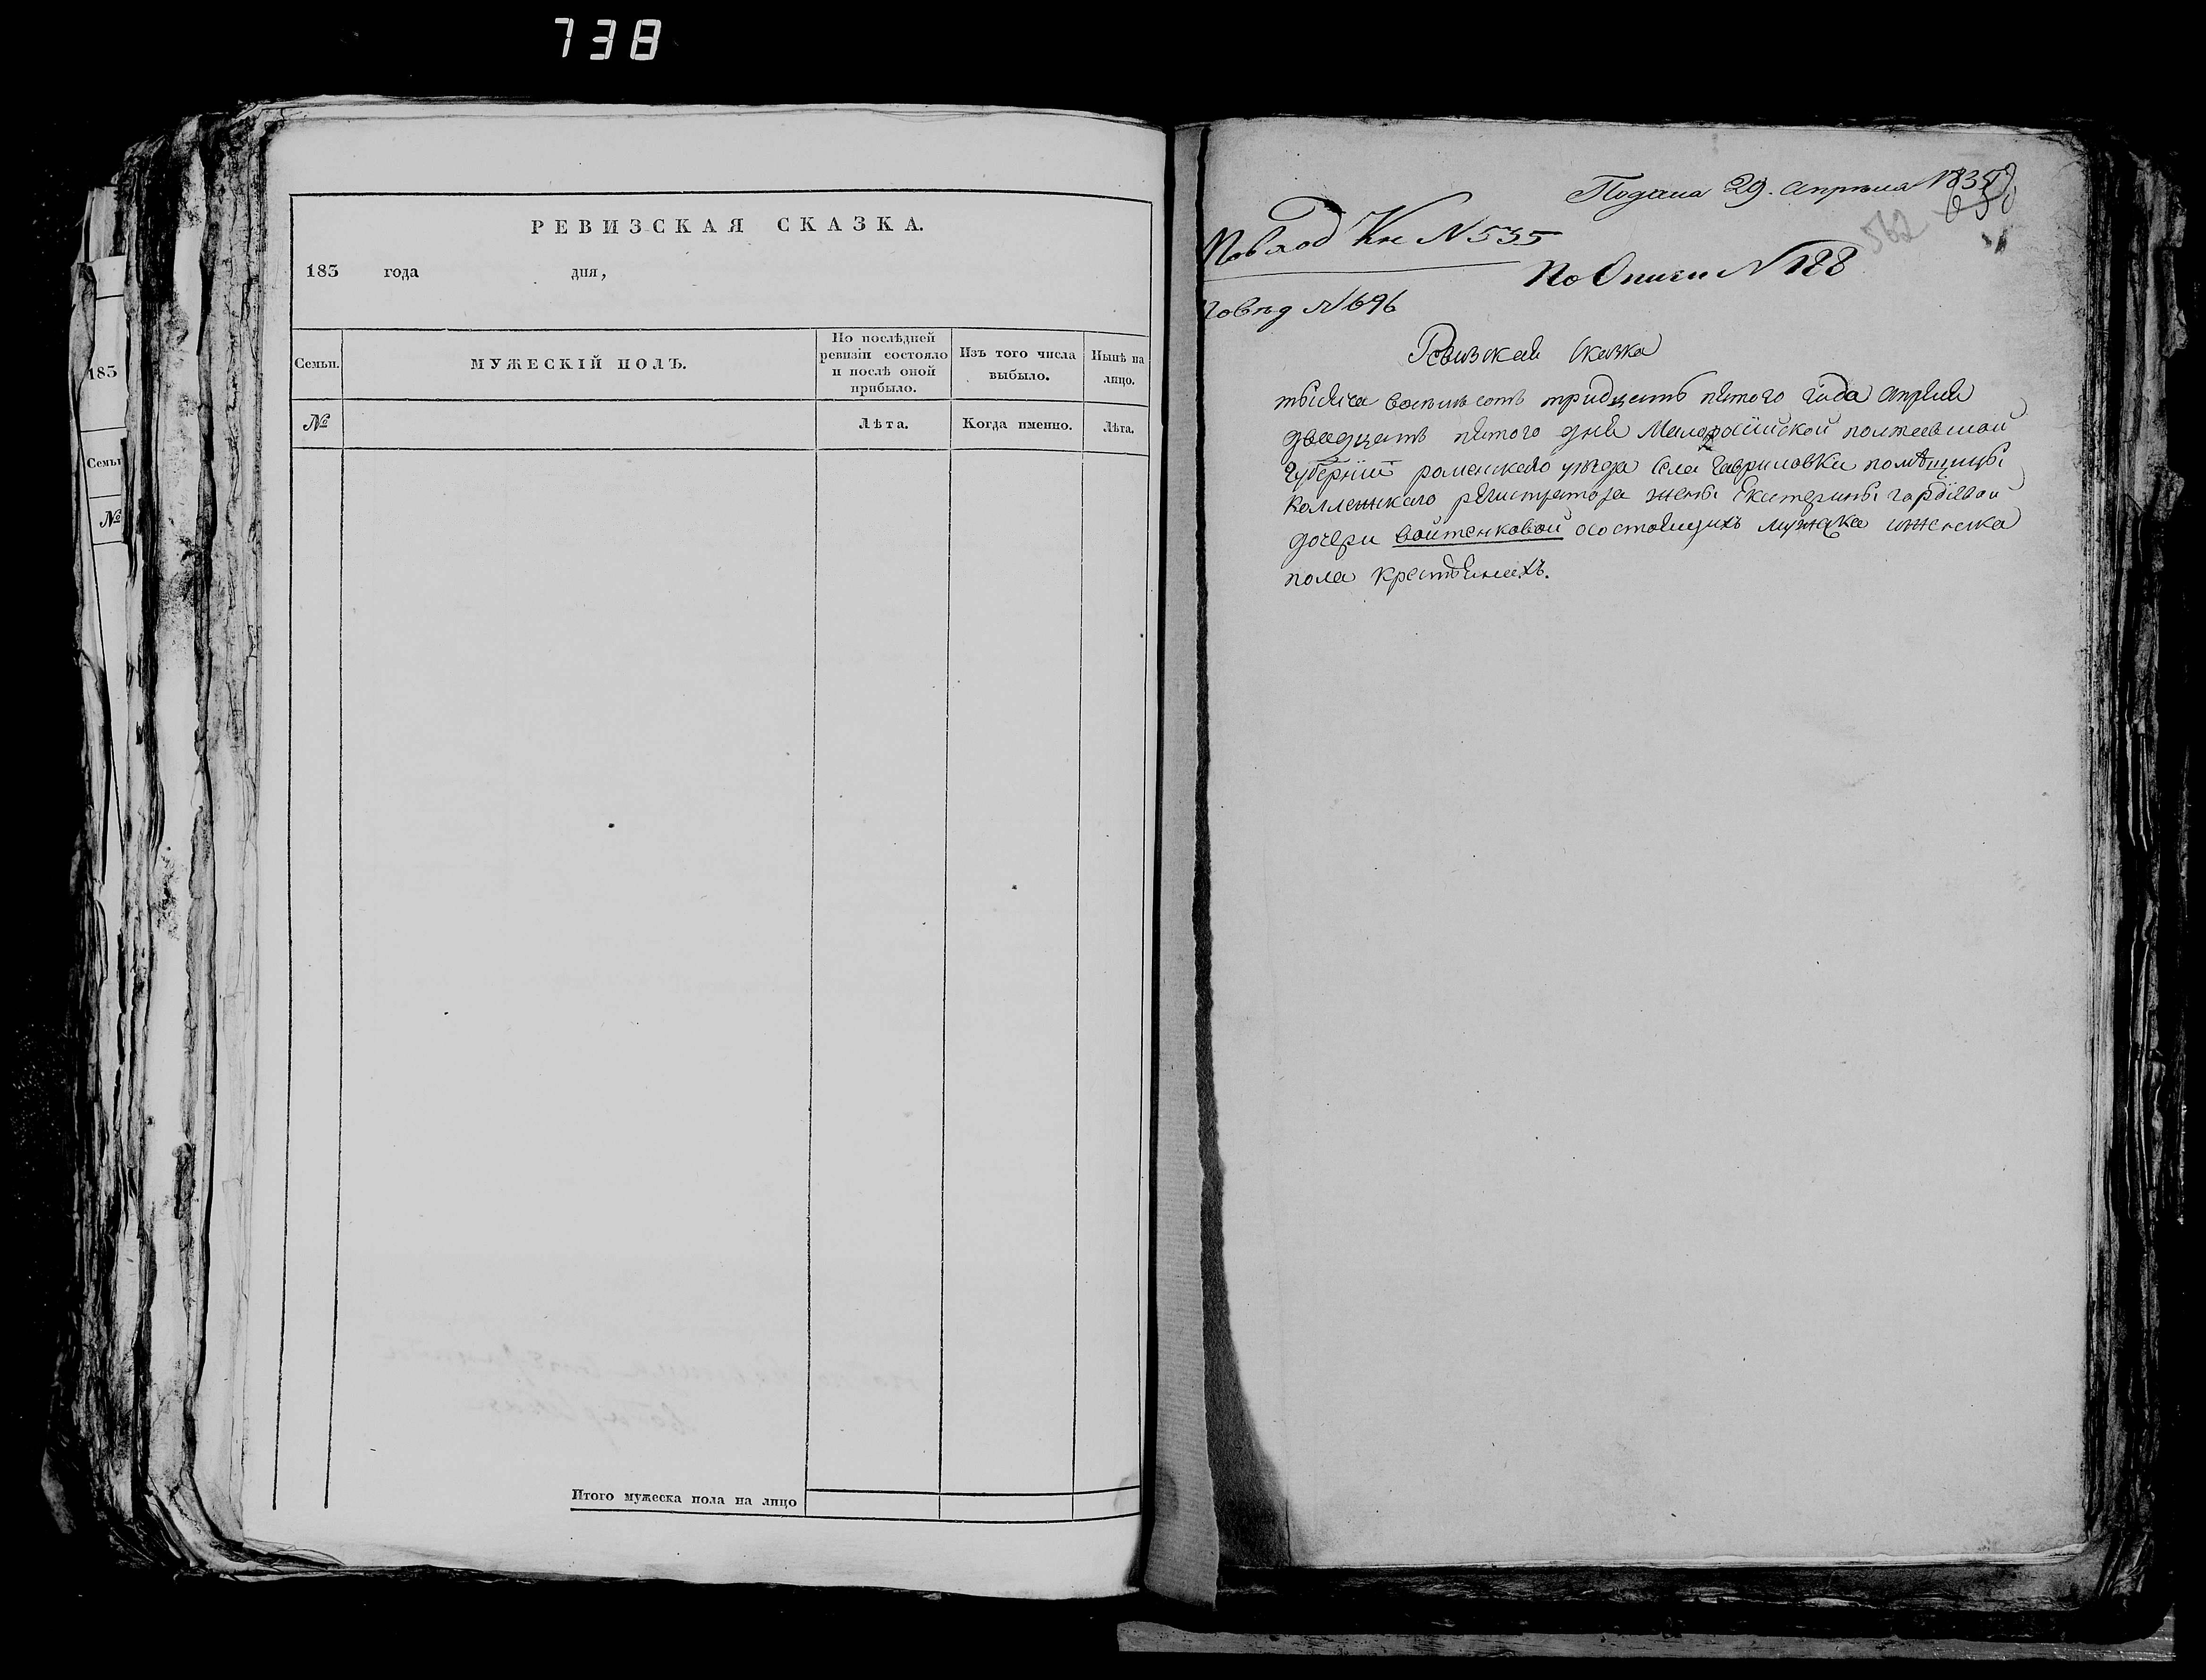 738
РЕВИЗСКАЯ СКАЗКА.
183 года дня,
Семьи.
МУЖЕСКІЙ ПОЛЪ.
По послѣдней ревизіи состояло и послѣ оной прибыло.
Изъ того числа выбыло.
Нынѣ на лицо.
№
Лѣта.
Когда именно.
Лѣта.
Итого мужеска пола на лицо
183
Семьи
№
Подана 29. апрѣля 1835
562
По вход Кн N 535
По Описи N 188
N 696
Ревизкая сказка
тысяча восемьсотъ тридцать пятого года апреля
двадцать пятого дня Малороссійской полтавской
Губерніи роменского уѣзда села Гавриловки помѣщицы
Коллежскаго регистратора жены Екатерины гордѣевой
дочери войтенковой осостоящихъ мужска иженска
пола крестьянахъ.